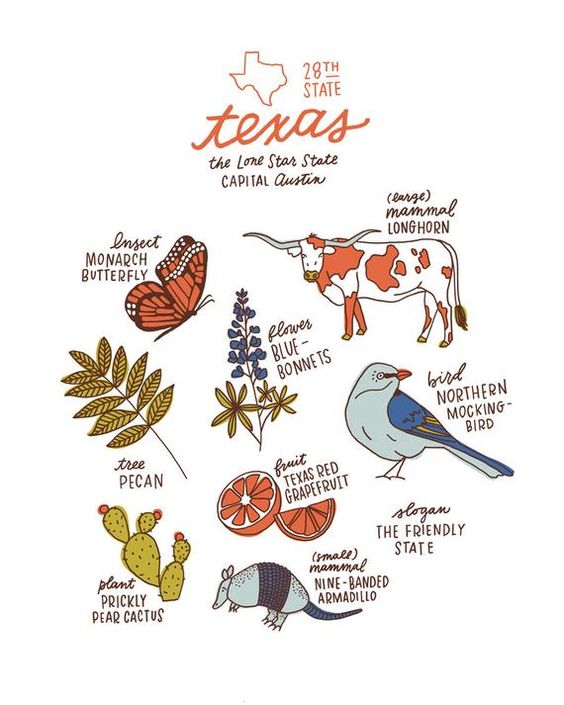 28TH
STATE
texas
the Lone Star State
CAPITAL Austin
(large)
mammal
LONGHORN
Insect
MONARCH
BUTTERFLY
flower
BLUE-
BONNETS
bird
NORTHERN
MOCKING-
BIRD
tree
PECAN
fruit
TEXAS RED
GRAPEFRUIT
slogan
THE FRIENDLY
STATE
plant
PRICKLY
PEAR CACTUS
(small)
mammal
NINE-BANDED
ARMADILLO